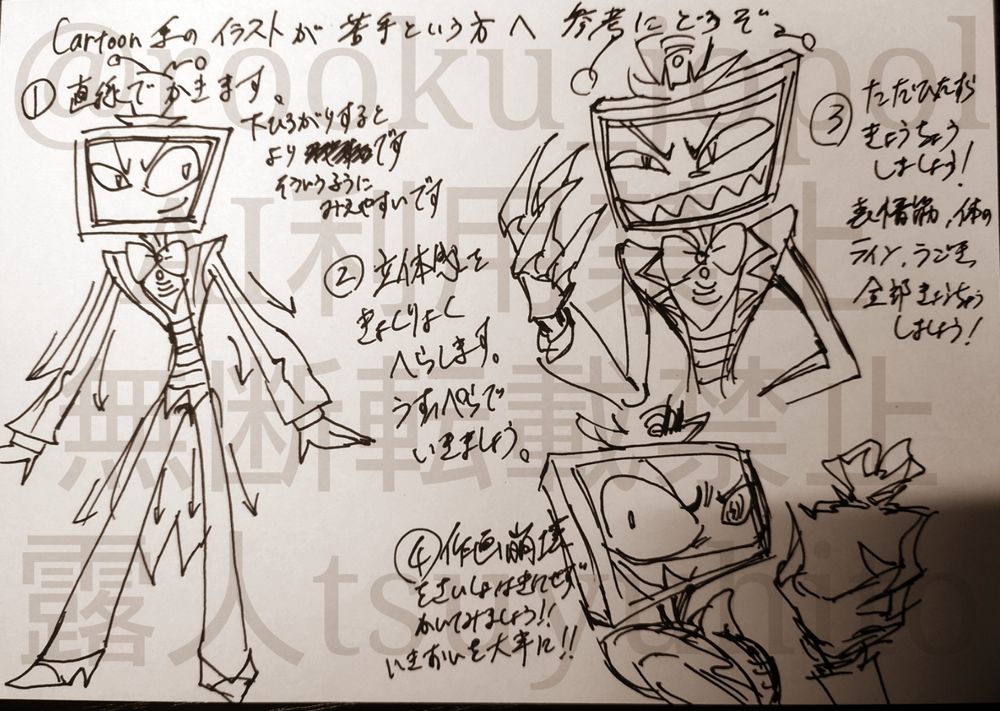 Cartoon系のイラストが苦手という方へ 参考にどうぞ
① 直線でかきます。
下ひろがりすると
より です
そういうふうに
みえやすいです
② 立体感を
きょくりょく
へらします。
うすっぺらで
いきましょう。
③ ただひたすら
きょうちょう
しましょう!
表情筋、体の
ライン、うごき、
全部きょうちょう
しましょう!
④ 作画崩壊
をさいしょは気にせず
かいてみましょう!!
いきおいを大事に!!
@rooku_jopol
AI利用禁止
無断転載禁止
露人tsuyuhito